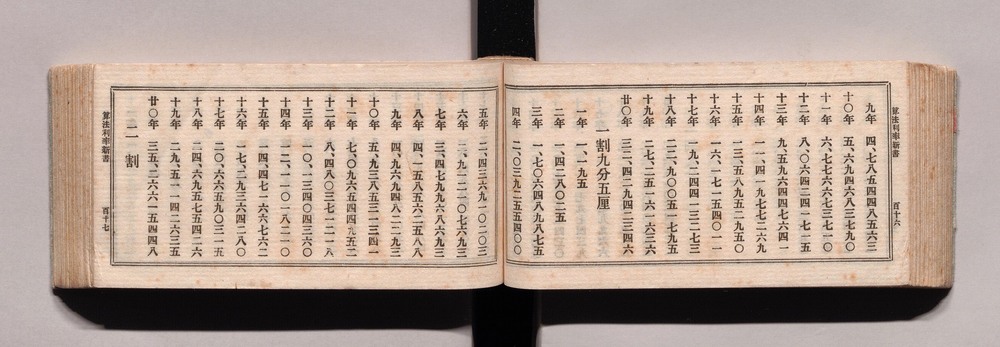 算法利率新書 百十六
九年 四、七八五四四八五六三
十〇年 五、六九四六八三七九〇
十一年 六、七七六六七三七一〇
十二年 八、〇六四二四一七一五
十三年 九、五九六四四七六四一
十四年 一一、四一九七七二六九
十五年 一三、五八九五二九五〇
十六年 一六、一七一五四〇一一
十七年 一九、二四四一三二七三
十八年 二二、九〇〇五一七九五
十九年 二七、二五一六一六三六
廿〇年 三二、四二九四二三四六
一割九分五厘
一年 一、一九五
二年 一、四二八〇二五
三年 一、七〇六四八九八七五
四年 二、〇三九二五五四〇〇
五年 二、四三六九一〇二〇三
六年 二、九一二一〇七六九三
七年 三、四七九九六八六九三
八年 四、一五八五六二五八八
九年 四、九六九四八二二九三
十〇年 五、九三八五三一三四一
十一年 七、〇九六五四四九五二
十二年 八、四八〇三七一二一八
十三年 一〇、一三四〇四三六〇
十四年 一二、一一〇一八二一〇
十五年 一四、四七一六六七六二
十六年 一七、二九三六四二八〇
十七年 二〇、六六五九〇三一五
十八年 二四、六九五七五四二六
十九年 二九、五一一四二六三五
廿〇年 三五、二六六一五四四八
二割
算法利率新書 百十七